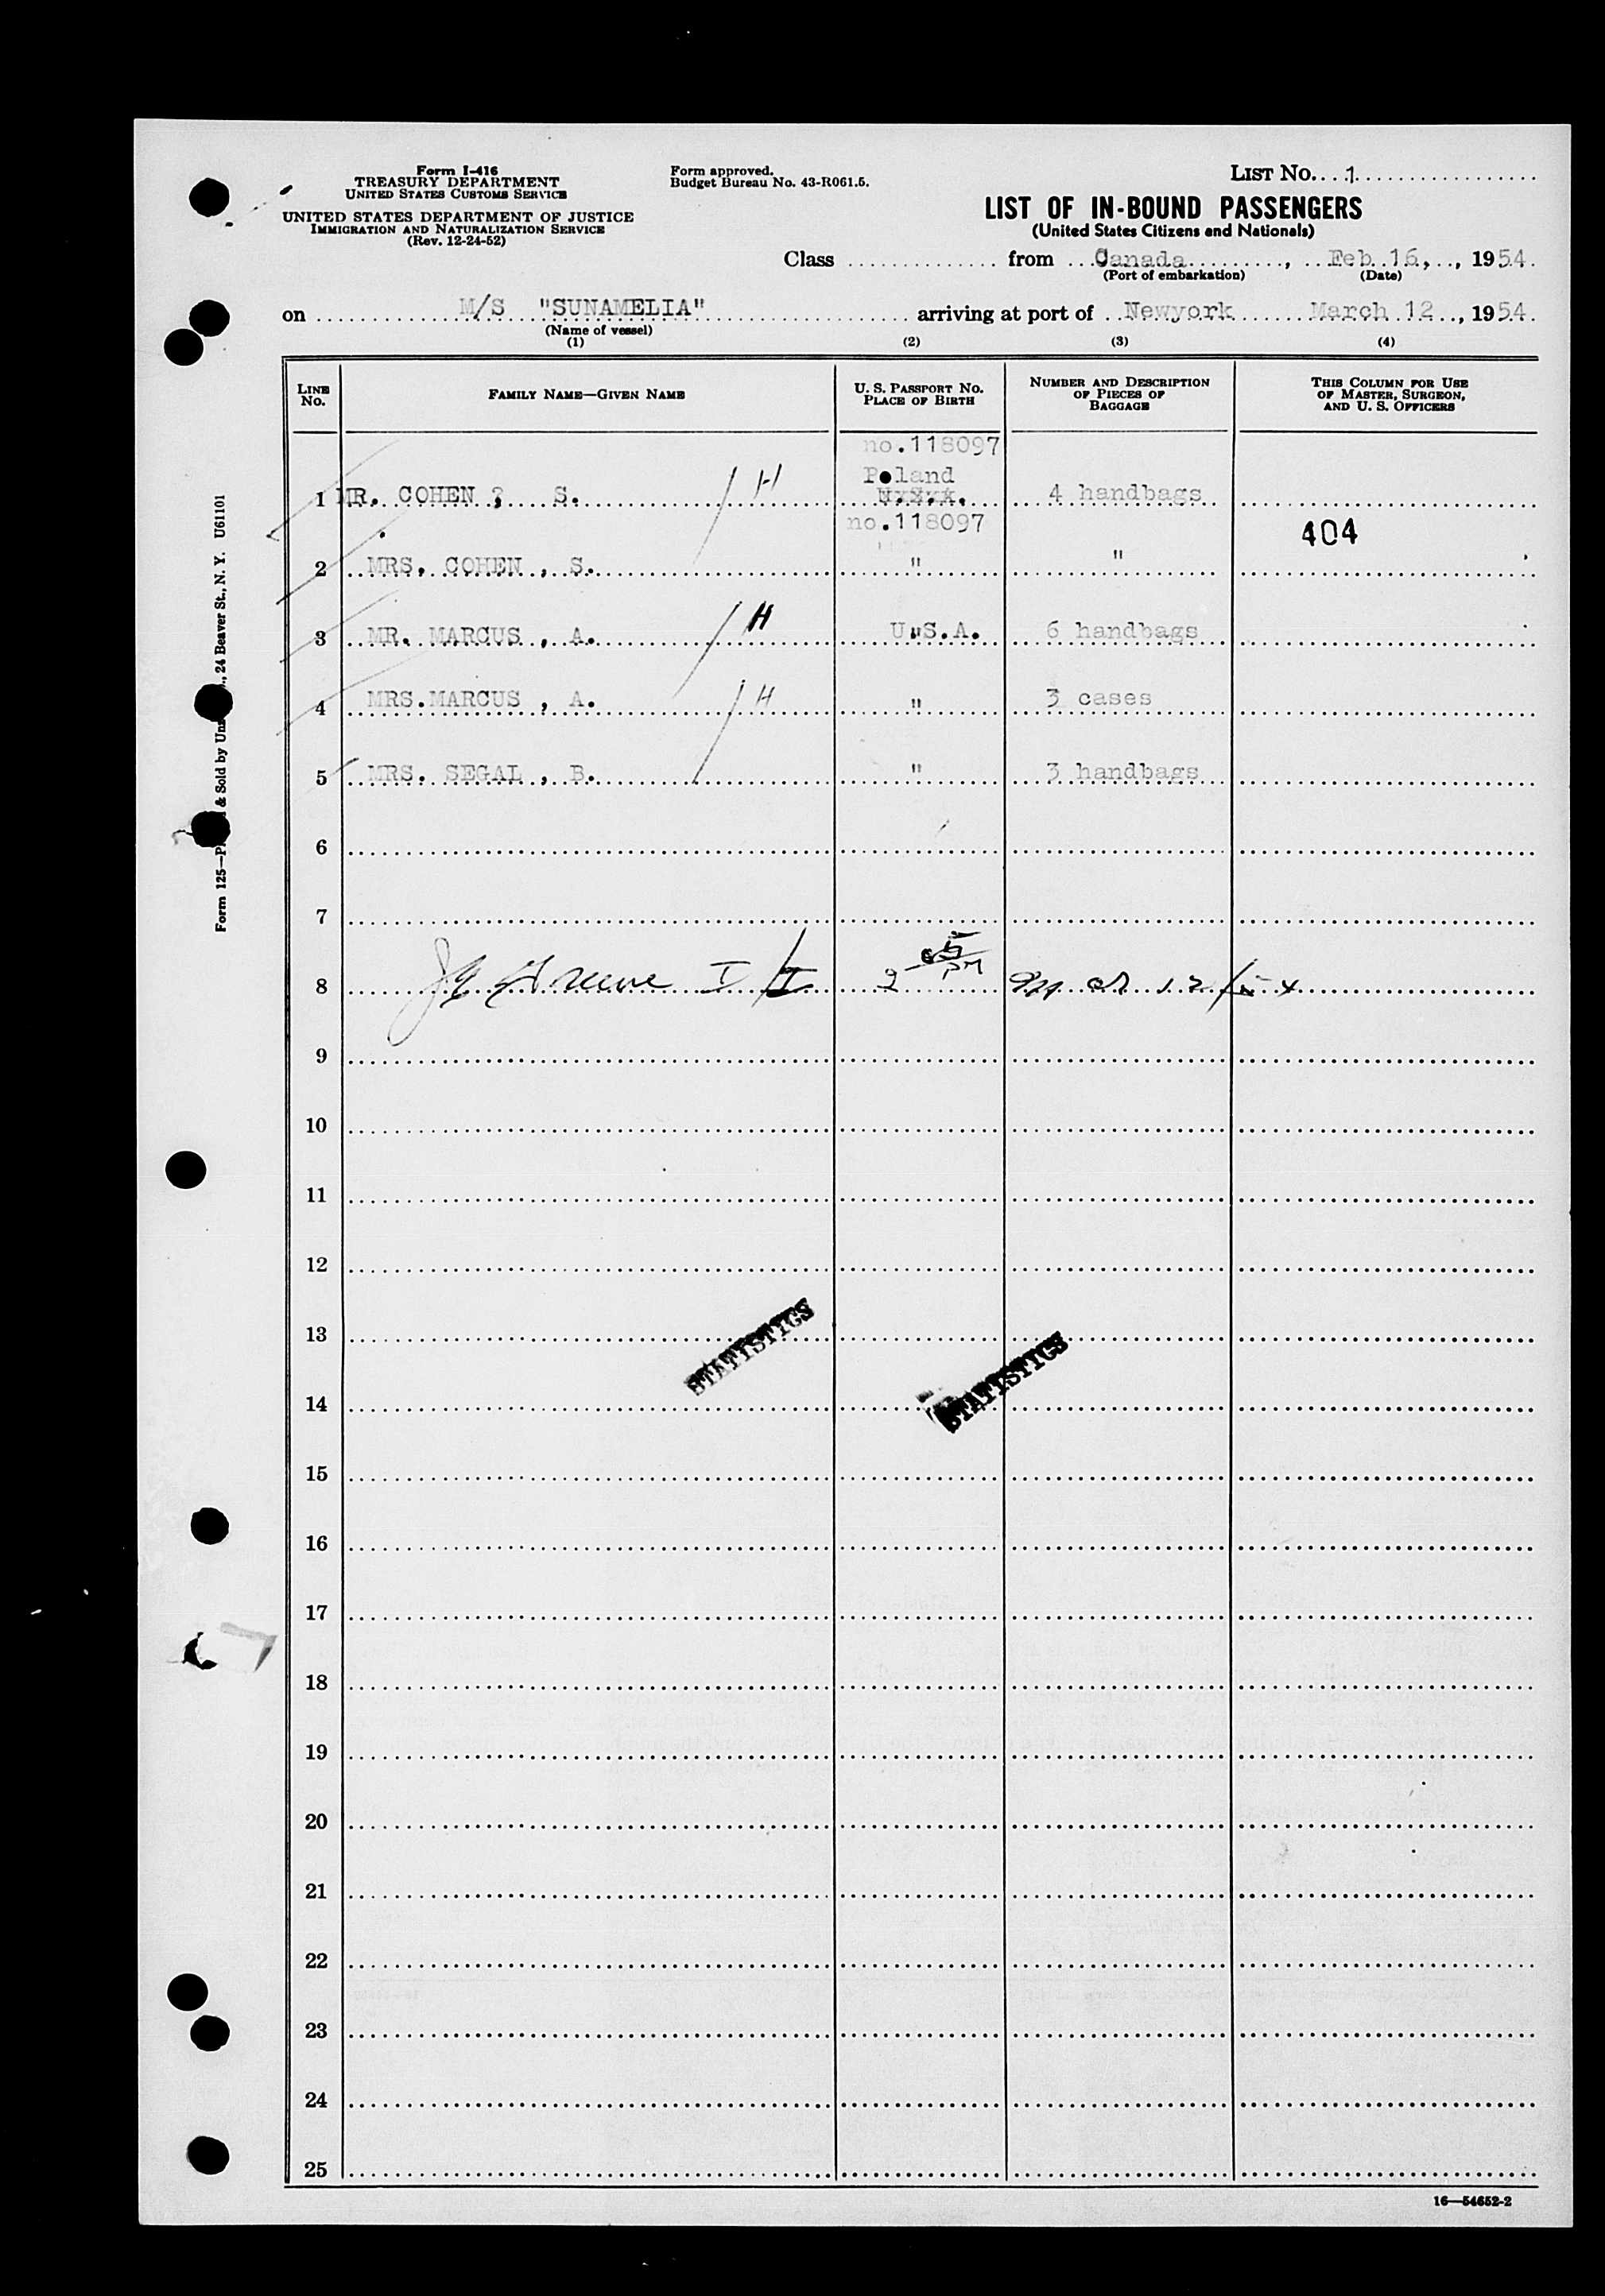 Form I-416
TREASURY DEPARTMENT
UNITED STATES CUSTOMS SERVICE
UNITED STATES DEPARTMENT OF JUSTICE
IMMIGRATION AND NATURALIZATION SERVICE
(Rev. 12-24-52)
Form approved.
Budget Bureau No. 43-R061.5.
LIST No. 1
LIST OF IN-BOUND PASSENGERS
(United States Citizens and Nationals)
Class from Canada, Feb 16, , 1954.
(Port of embarkation) (Date)
on M/S "SUNAMELIA" arriving at port of Newyork March 12 , 1954.
(Name of vessel)
(1) (2) (3) (4)
LINE No. FAMILY NAME—GIVEN NAME U. S. PASSPORT No. PLACE OF BIRTH NUMBER AND DESCRIPTION OF PIECES OF BAGGAGE THIS COLUMN FOR USE OF MASTER, SURGEON, AND U. S. OFFICERS
no.118097
Poland
1 MR. COHEN , S. / H 4 handbags
no.118097
404
2 MRS. COHEN , S. " "
3 MR. MARCUS , A. / H U.S.A. 6 handbags
4 MRS.MARCUS , A. / H " 3 cases
5 MRS. SEGAL , B. " 3 handbags
6
7
8 I/I 2 05 pm Mar 12/54
9
10
11
12
13
STATISTICS
STATISTICS
14
15
16
17
18
19
20
21
22
23
24
25
16—54652-2
Form 125— & Sold by , 24 Beaver St., N. Y. U61101